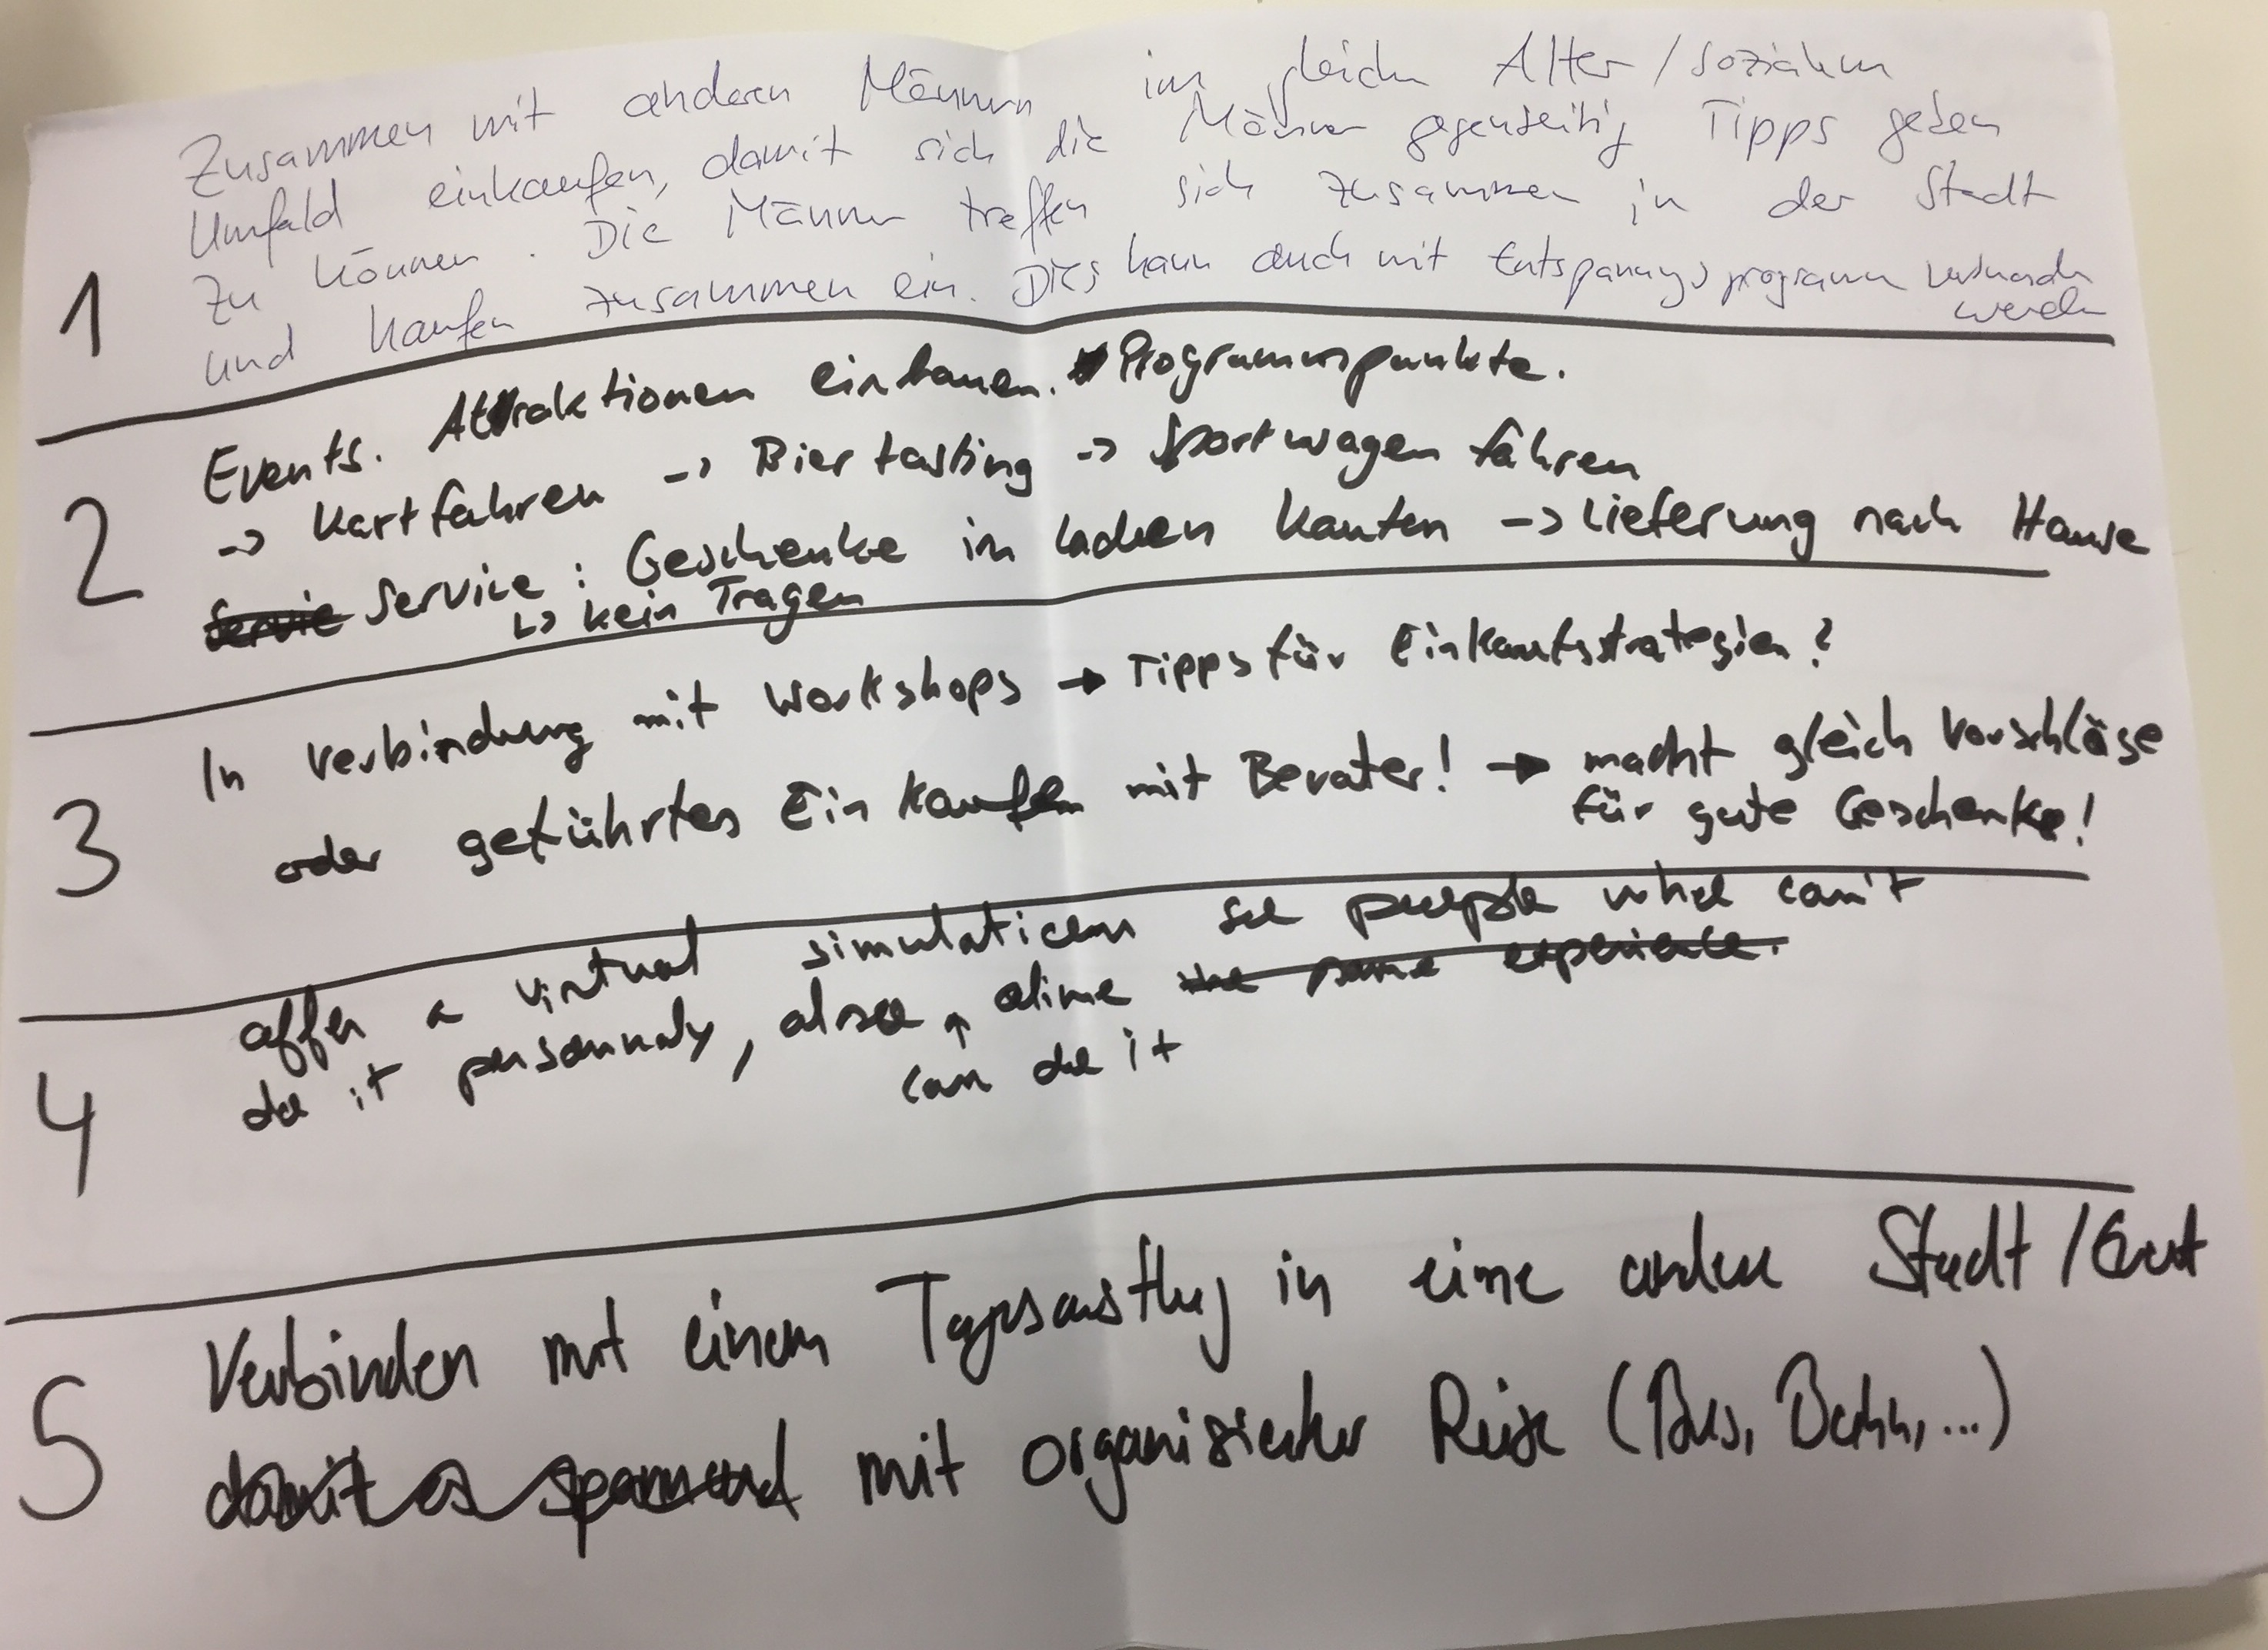 Zusammen mit anderen Männern im gleichen Alter / sozialem
Umfeld einkaufen, damit sich die Männer gegenseitig Tipps geben
zu können. Die Männer treffen sich zusammen in der Stadt
1 und kaufen zusammen ein. Dies kann auch mit Entspannungsprogramm verbunden
werden
Events. Attraktionen einbauen. Programmpunkte.
2 -> Kartfahren -> Bier tasting -> Sportwagen fahren
Servie Service : Geschenke im laden kaufen -> Lieferung nach Hause
↳ kein Tragen
In Verbindung mit Workshops → Tipps für Einkaufsstrategien?
3 oder geführtes Einkaufen mit Berater! → macht gleich Vorschläge
für gute Geschenke!
offer a virtual simulation so people who can't
4 do it personnaly, also ↑ alone the same experience.
can do it
Verbinden mit einem Tagesausflug in eine andere Stadt /
5 damit es spannend mit organisierter Reise (Bus, Bahn, ...)